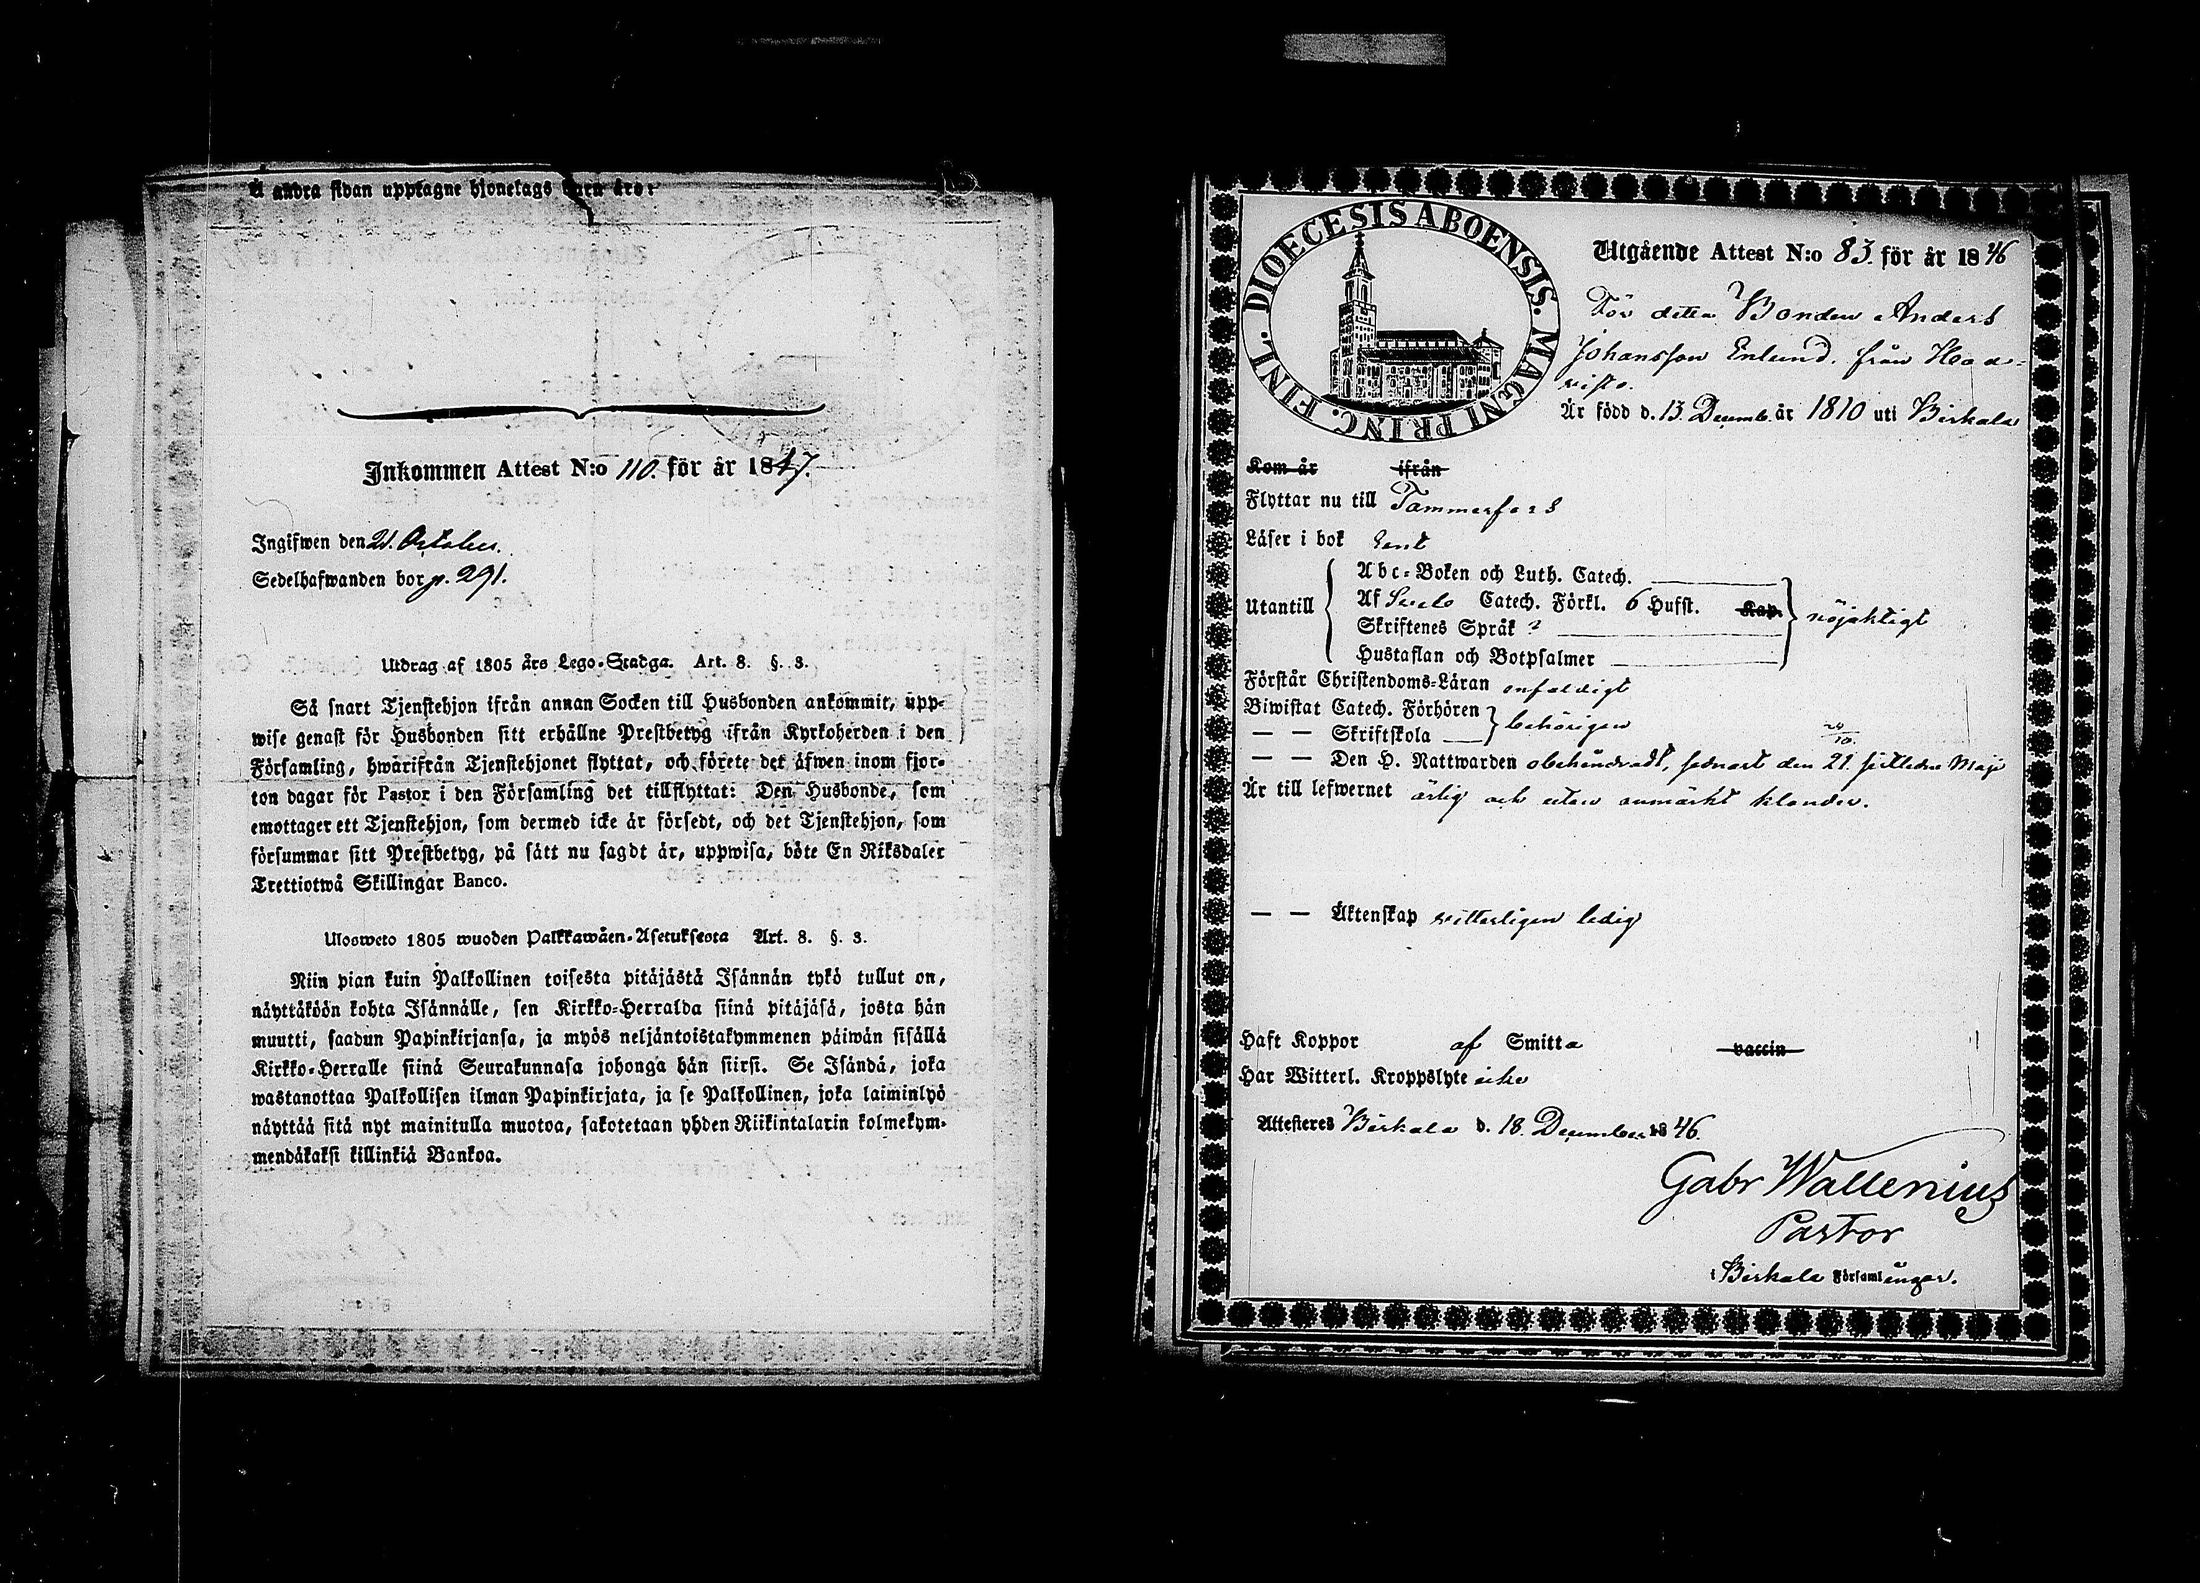 Å andra sidan upptagne hjonelags barn äro:
Inkommen Attest N:o 110. för år 1847.
Ingifwen den 21. October.
Sedelhafwanden bor p. 291.
Utdrag af 1805 års Lego-Stadga. Art. 8. §. 3.
Så snart Tjenstehjon ifrån annan Socken till Husbonden ankommit, upp-
wise genast för Husbonden sitt erhållne Prestbetyg ifrån Kyrkoherden i den
Församling, hwarifrån Tjenstehjonet flyttat, och förete det äfwen inom fjor-
ton dagar för Pastor i den Församling det tillflyttat: Den Husbonde, som
emottager ett Tjenstehjon, som dermed icke är försedt, och det Tjenstehjon, som
försummar sitt Prestbetyg, på sätt nu sagdt är, uppwisa, böte En Riksdaler
Trettiotwå Skillingar Banco.
Ulosweto 1805 wuoden Palkkawäen-Asetuksesta Art. 8. §. 3.
Niin pian kuin Palkollinen toisesta pitäjästä Isännän tykö tullut on,
näyttäköön kohta Isännälle, sen Kirkko-Herralda siinä pitäjäsä, josta hän
muutti, saadun Papinkirjansa, ja myös neljäntoistakymmenen päiwän sisällä
Kirkko-Herralle siinä Seurakunnasa johonga hän siirsi. Se Isändä, joka
wastanottaa Palkollisen ilman Papinkirjata, ja se Palkollinen, joka laiminlyö
näyttää sitä nyt mainitulla muotoa, sakotetaan yhden Riikintalarin kolmekym-
mendäkaksi killinkiä Bankoa.
DIOECESIS ABOENSIS. MAGNI PRINC. FINL.
Utgående Attest N:o 83. för år 1846
För detta Bonden Anders
Johansson Enlund. från Haa-
visto.
Är född d. 13. Decemb. år 1810 uti Birkala
Kom år ifrån
Flyttar nu till Tammerfors
Läser i bok rent
Utantill
Abc-Boken och Luth. Catech.
Af Svebs Catech. Förkl. 6 Hufst. Kap.
Skriftenes Språk ?
Hustaflan och Botpsalmer
nöjaktigt
Förstår Christendoms-Läran enfaldigt
Biwistat Catech. Förhören
— — Skriftskola —
behörigen 20/10.
— — Den H. Nattwarden obehindradt, sednast den 21. sistledne Maji
Är till lefwernet ärlig och utan anmärkt klander.
— — Äktenskap witterligen ledig
Haft Koppor af Smitta vaccin
Har Witterl. Kroppslyte icke
Attesteres Birkala d. 18. December 1846.
Gabr Wallenius
Pastor
i Birkala Församlingar.